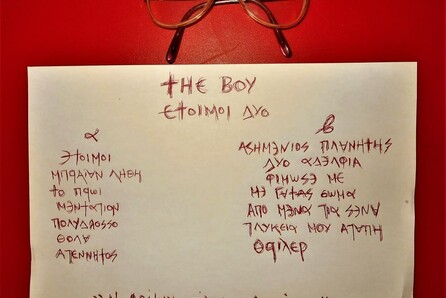 THE BOY
ΕΤΟΙΜΟΙ ΔΥΟ
α
ΕΤΟΙΜΟΙ
ΜΠΡΑΙΑΝ ΛΗΘΗ
ΤΟ ΠΡΩΙ
ΜΕΝΤΑΓΙΟΝ
ΠΟΛΥΔΡΟΣΣΟ
ΘΟΛΑ
ΑΓΕΝΝΗΤΟΣ
β
ΑΣΗΜΕΝΙΟΣ ΠΛΑΝΗΤΗΣ
ΔΥΟ ΑΔΕΛΦΙΑ
ΦΙΜΩΣΕ ΜΕ
ΜΕ ΓΑΤΑΣ ΣΩΜΑ
ΑΠΟ ΜΕΝΑ ΓΙΑ ΣΕΝΑ
ΓΛΥΚΕΙΑ ΜΟΥ ΑΓΑΠΗ
ΘΡΙΛΕΡ